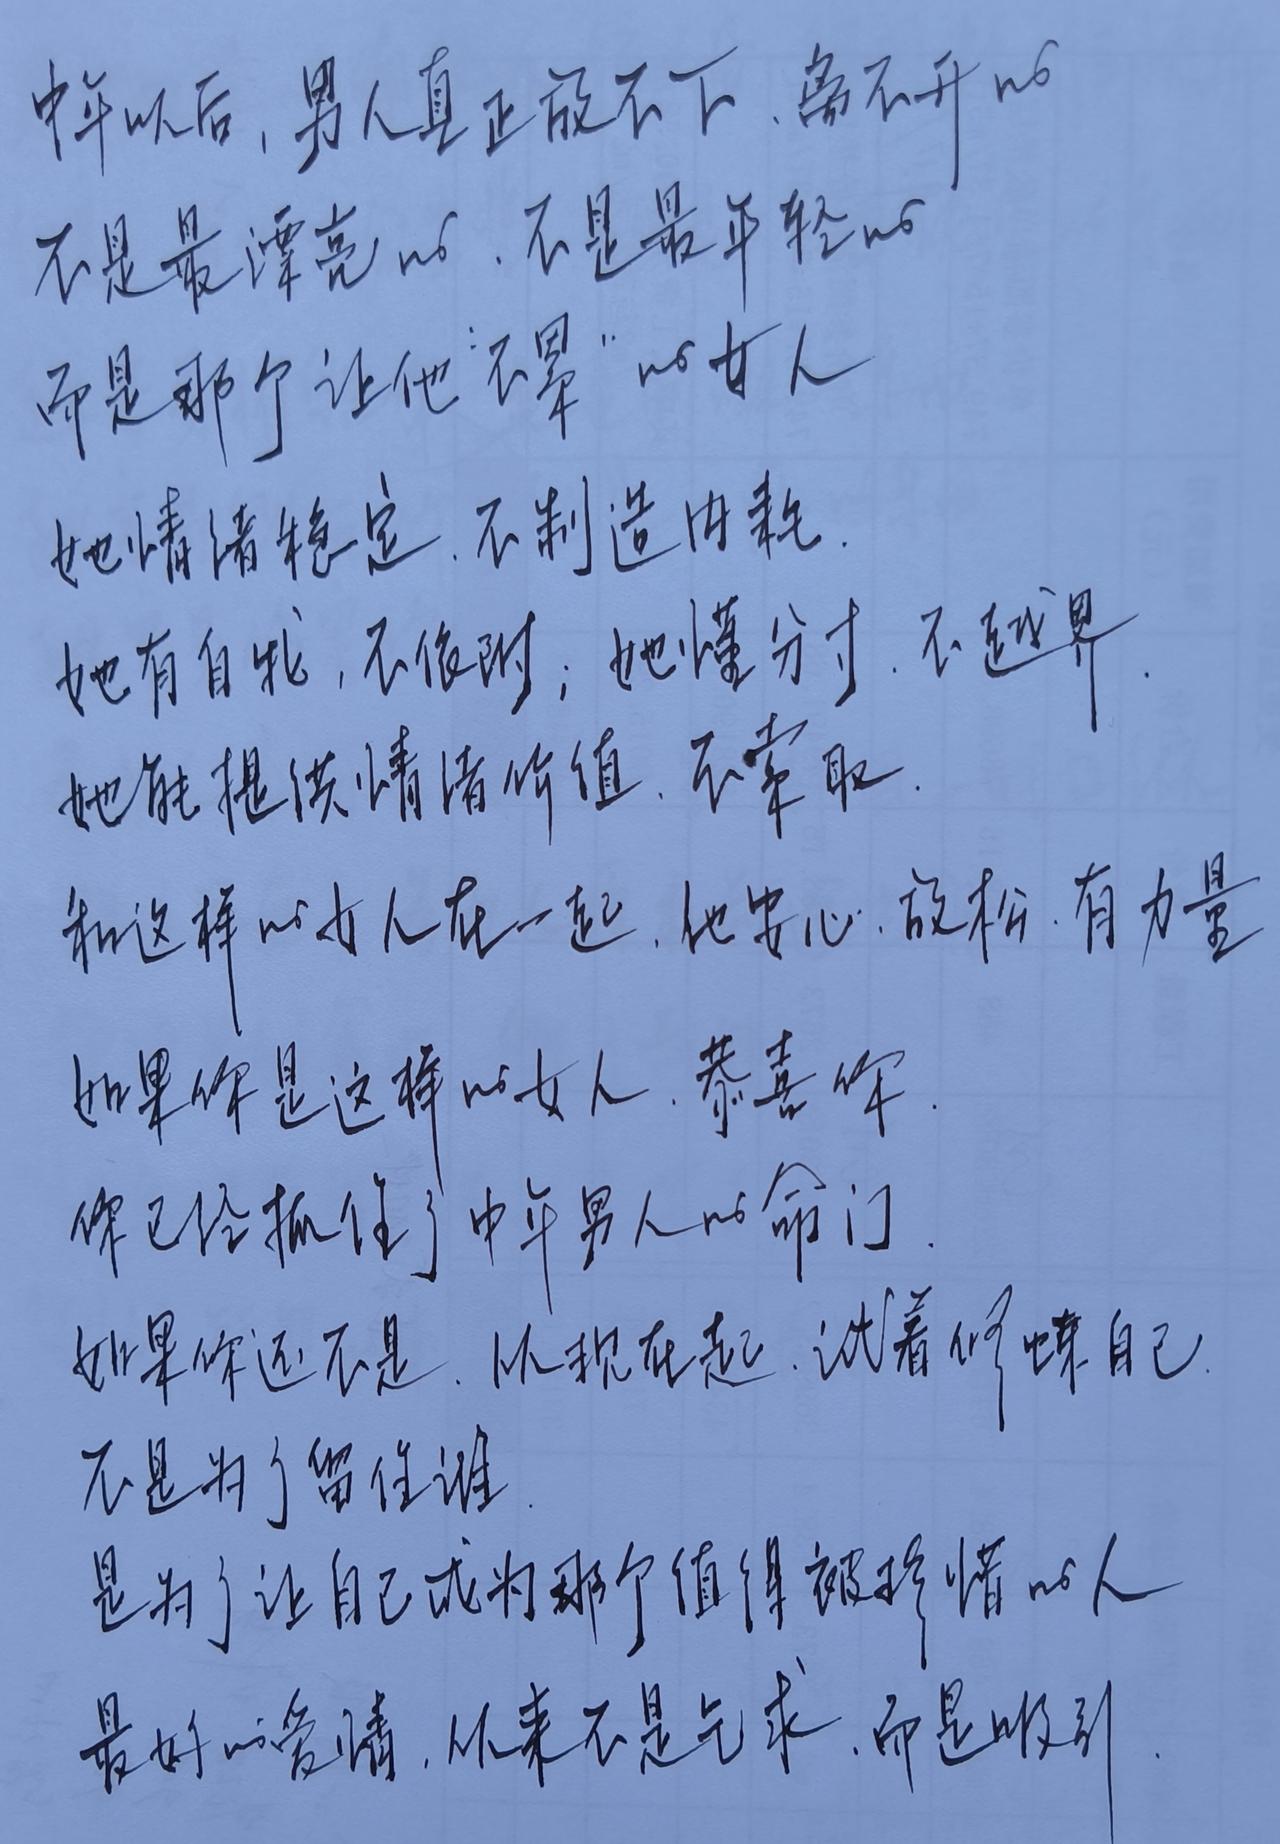 中年以后，男人真正放不下、离不开的
不是最漂亮的、不是最年轻的
而是那个让他“不累”的女人
她情绪稳定、不制造内耗.
她有自我，不依附；她懂分寸、不越界.
她能提供情绪价值、不索取.
和这样的女人在一起、他安心、放松、有力量
如果你是这样的女人、恭喜你.
你已经抓住了中年男人的命门.
如果你还不是、从现在起、试着修炼自己.
不是为了留住谁.
是为了让自己成为那个值得被珍惜的人
最好的爱情，从来不是乞求、而是吸引.